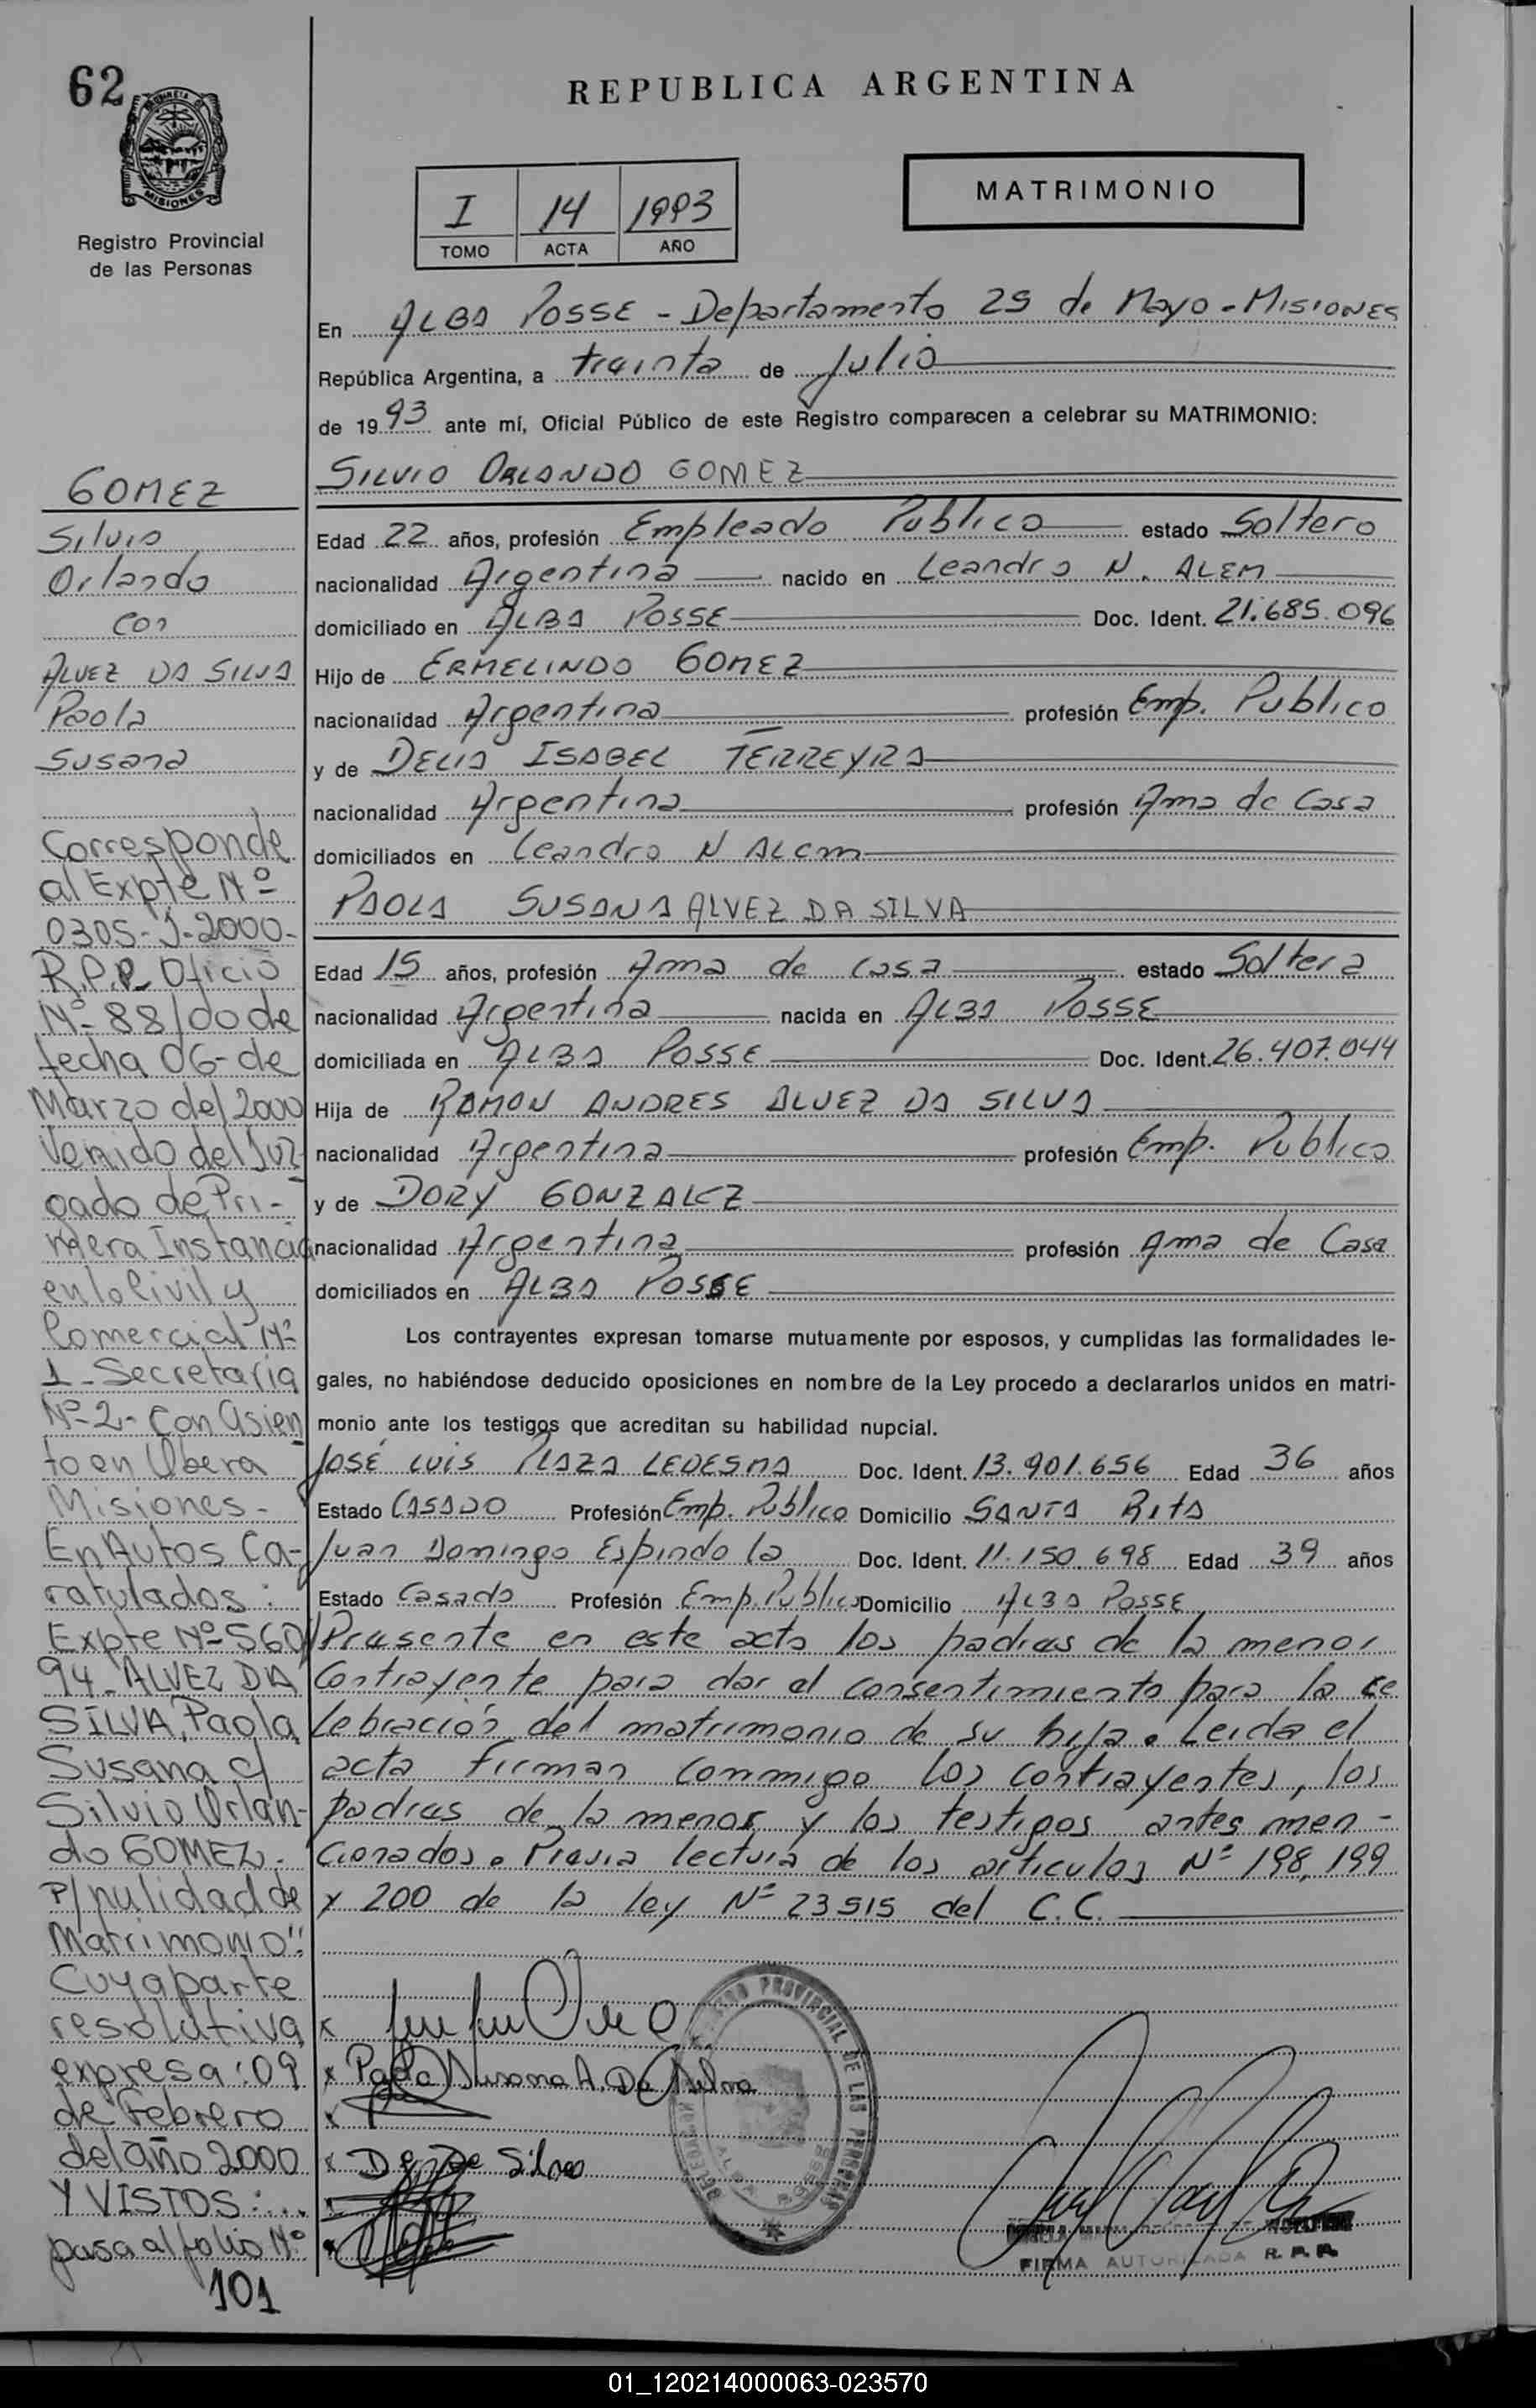 62
Registro Provincial
de las Personas
REPUBLICA ARGENTINA
I 14 1993
TOMO ACTA AÑO
MATRIMONIO
En ALBA POSSE - Departamento 25 de Mayo - MISIONES
República Argentina, a treinta de Julio
de 1993 ante mí, Oficial Público de este Registro comparecen a celebrar su MATRIMONIO:
SILVIO ORLANDO GOMEZ
Edad 22 años, profesión Empleado Publico estado Soltero
nacionalidad Argentina nacido en Leandro N. ALEM
domiciliado en ALBA POSSE Doc. Ident. 21.685.096
Hijo de ERMELINDO GOMEZ
nacionalidad Argentina profesión Emp. Publico
y de DELIA ISABEL TERREYRA
nacionalidad Argentina profesión Ama de Casa
domiciliados en Leandro N ALem
PAOLA SUSANA ALVEZ DA SILVA
Edad 15 años, profesión Ama de casa estado Soltera
nacionalidad Argentina nacida en ALBA POSSE
domiciliada en ALBA POSSE Doc. Ident. 26.407.044
Hija de RAMON ANDRES ALVEZ DA SILVA
nacionalidad Argentina profesión Emp. Publico
y de DORY GONZALEZ
nacionalidad Argentina profesión Ama de Casa
domiciliados en ALBA POSSE
Los contrayentes expresan tomarse mutuamente por esposos, y cumplidas las formalidades le-
gales, no habiéndose deducido oposiciones en nombre de la Ley procedo a declararlos unidos en matri-
monio ante los testigos que acreditan su habilidad nupcial.
JOSÉ LUIS PLAZA LEDESMA Doc. Ident. 13.901.656 Edad 36 años
Estado CASADO Profesión Emp. Publico Domicilio SANTA RITA
Juan Domingo Espindola Doc. Ident. 11.150.698 Edad 39 años
Estado Casado Profesión Emp. Publico Domicilio ALBA POSSE
Presente en este acto los padres de la menor
Contrayente para dar el consentimiento para la ce
lebración del matrimonio de su hija. Leida el
acta firman conmigo los contrayentes, los
padres de la menor y los testigos antes men-
cionados. Previa lectura de los articulos Nº 198, 199
y 200 de la ley Nº 23515 del C.C.
GOMEZ
Silvio
Orlando
con
ALVEZ DA SILVA
Paola
Susana
Corresponde
al Expte Nº
0305-J-2000-
R.P.P. Oficio
Nº 88/00 de
fecha 06-de
Marzo del 2000
Venido del Juz
gado de Pri-
mera Instancia
en lo Civil y
Comercial Nº
1-Secretaria
Nº-2- Con asien
to en Obera
Misiones-
En Autos Ca-
ratulados:
Expte Nº 560/
94- ALVEZ DA
SILVA, Paola
Susana c/
Silvio Orlan-
do GOMEZ.
P/nulidad de
Matrimonio"
Cuya parte
resolutiva
expresa: 09
de Febrero
del año 2000
Y VISTOS:...
pasa al folio Nº
101
Paola Susana A. Da Silva
D G De Silva
REGISTRO PROVINCIAL DE LAS PERSONAS
ALBA POSSE
FIRMA AUTORIZADA R. P. P.
01_120214000063-023570